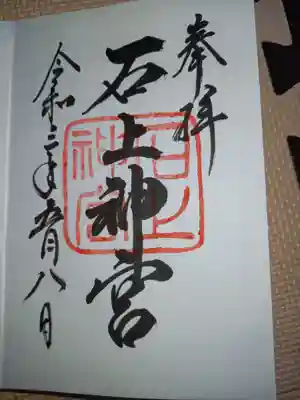 奉拝
石上神宮
石上神宮
令和三年五月八日